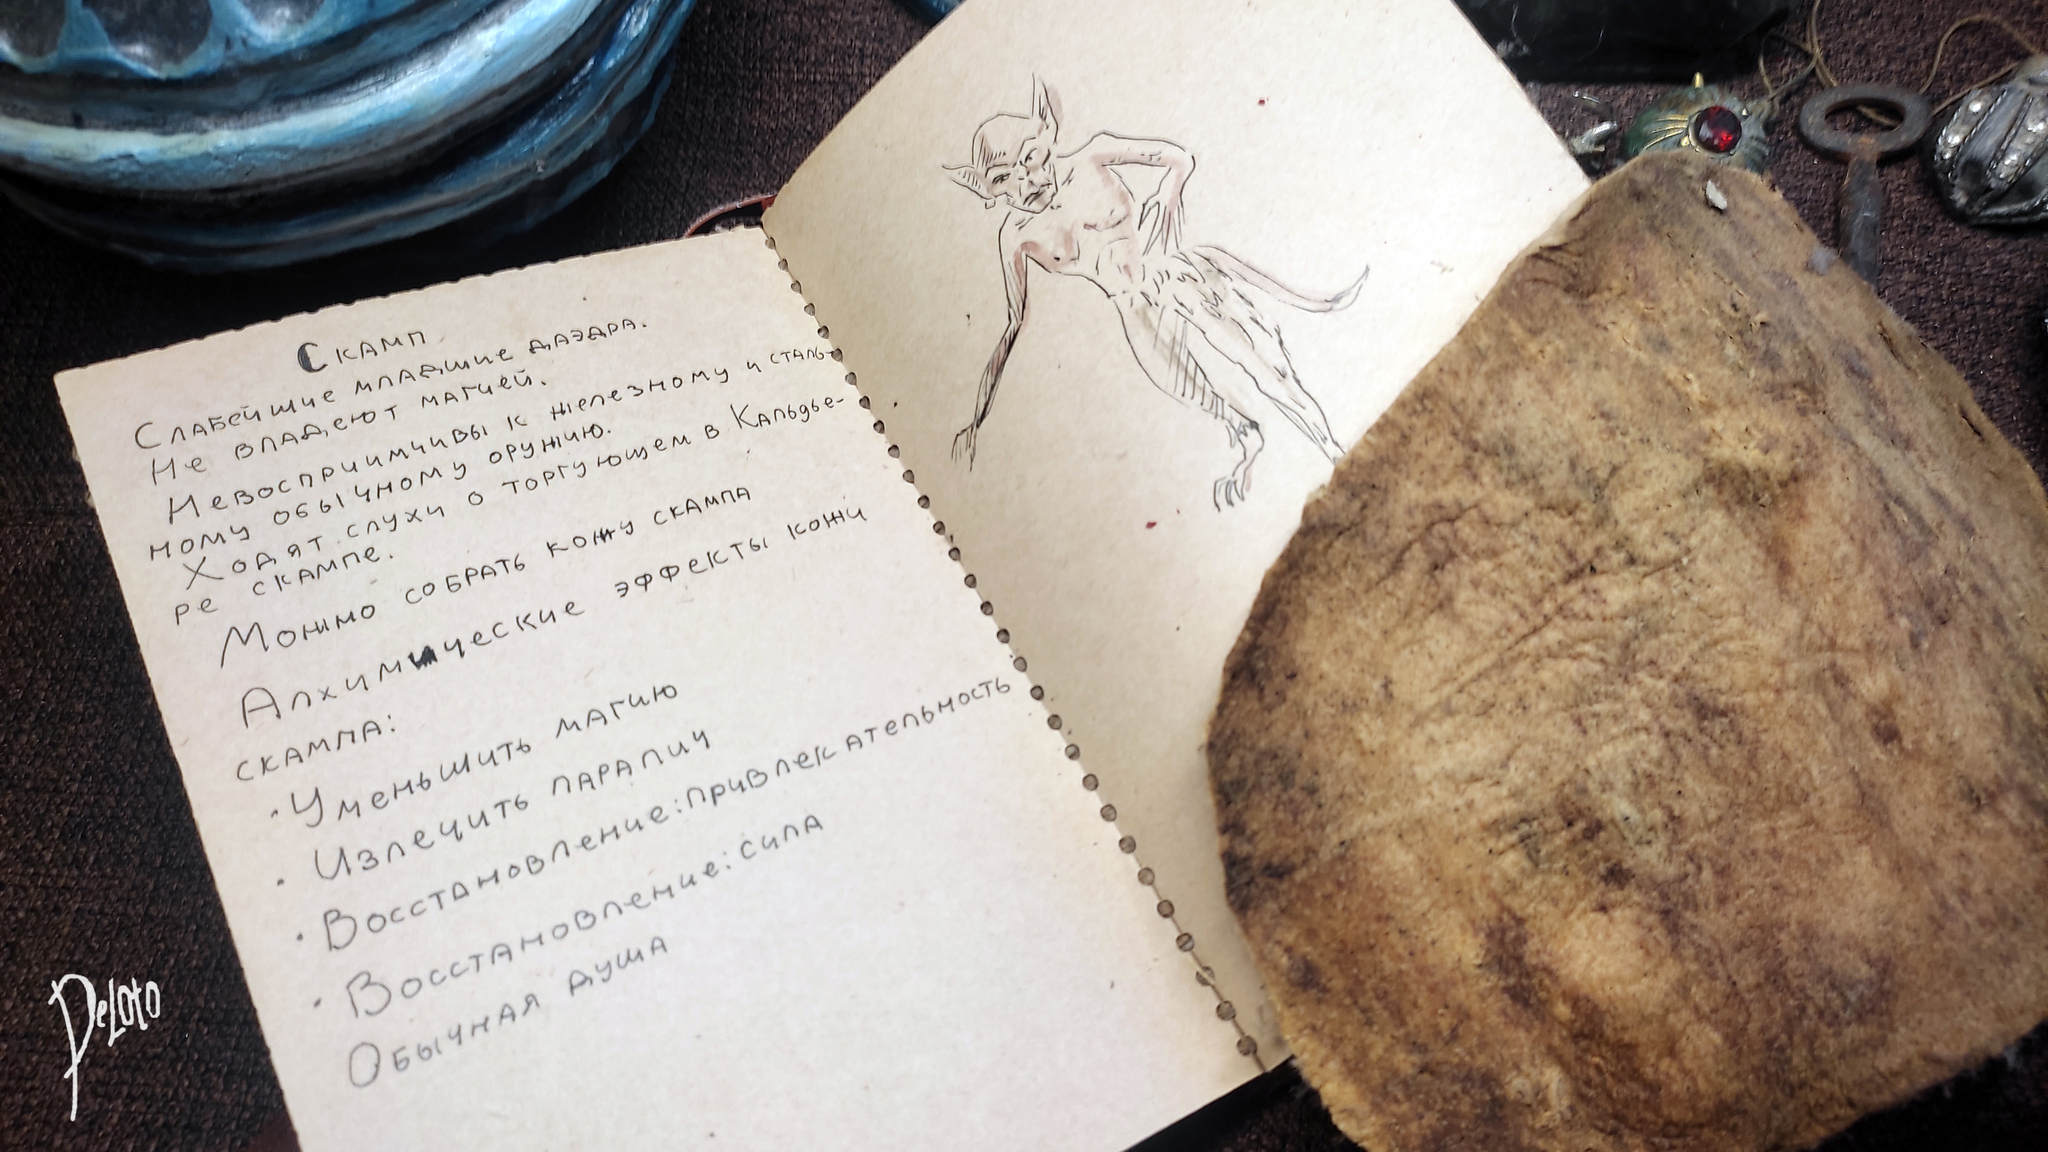 Скамп
Слабейшие младшие даэдра.
Не владеют магией.
Невосприимчивы к железному и сталь-
ному обычному оружию.
Ходят слухи о торгующем в Кальдье-
ре скампе.
Можно собрать кожу скампа
Алхимические эффекты кожи
скампа:
· Уменьшить магию
· Излечить паралич
· Восстановление: привлекательность
· Восстановление: сила
Обычная душа
DeLoto